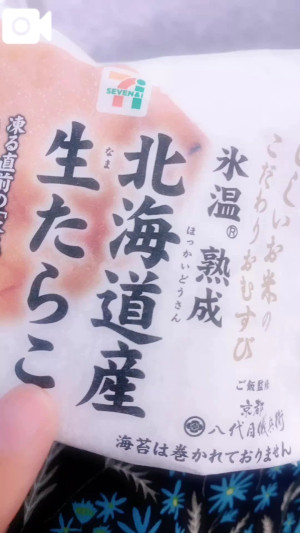 7i
SEVEN&i
しいお米の
こだわりおむすび
氷温® 熟成
北海道産
ほっかいどうさん
生たらこ
なま
凍る直前の
ご飯監修
京都
八代目儀兵衛
海苔は巻かれておりません